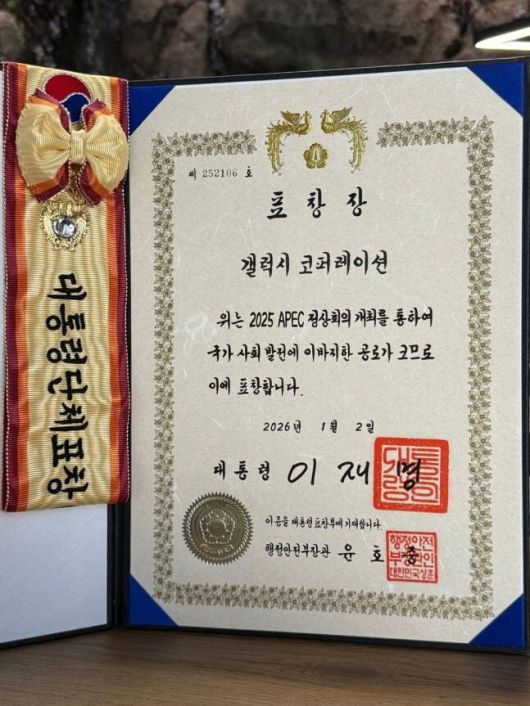 대통령단체표창
제 252106 호
표창장
갤럭시 코퍼레이션
위는 2025 APEC 정상회의 개최를 통하여
국가 사회 발전에 이바지한 공로가 크므로
이에 표창합니다.
2026년 1월 2일
대통령 이재명
대통령인
이 증을 대통령표창부에 기재합니다.
행정안전부장관 윤호중
행정안전
부장관인
대한민국상훈